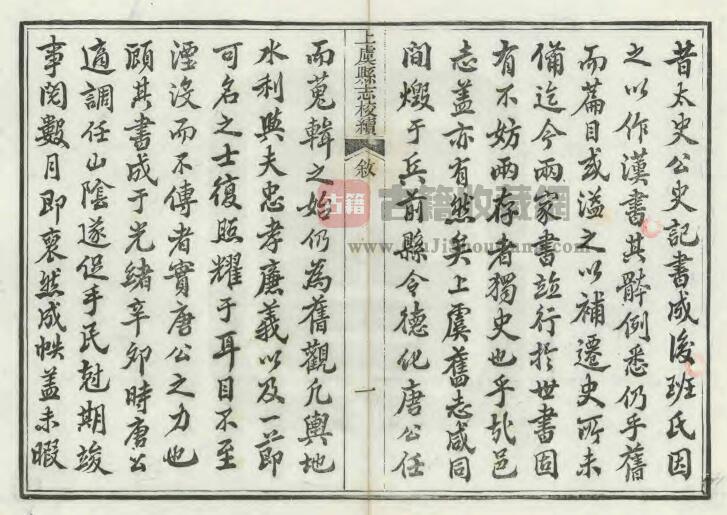 昔太史公史記書成後班氏因
之以作漢書其體例悉仍乎舊
而篇目或溢之以補遷史所未
備迄今兩家書竝行於世書固
有不妨兩存者獨史也乎哉邑
志蓋亦有然矣上虞舊志咸同
間燬于兵前縣令德化唐公任
上虞縣志校續
敘
一
而蒐輯之始仍為舊觀凡輿地
水利與夫忠孝廉義以及一節
可名之士復照耀于耳目不至
湮沒而不傳者實唐公之力也
顧其書成于光緒辛卯時唐公
適調任山陰遂促手民尅期竣
事閱數月即裒然成帙蓋未暇
古籍
古籍收藏網